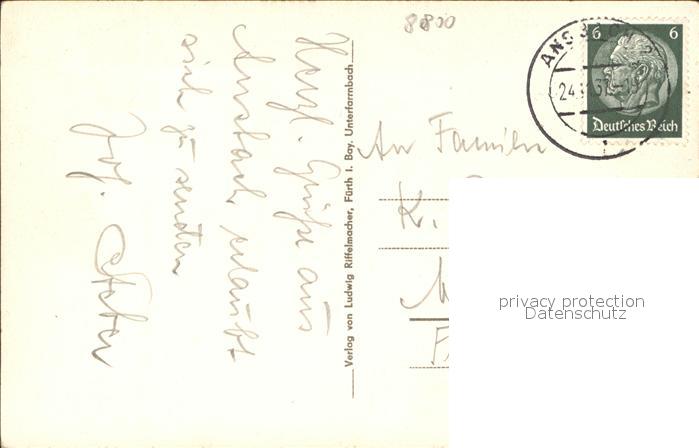 8800
Herzl. Grüße aus
Ansbach erlaubt
sich zu senden
Jos.
Verlag von Ludwig Riffelmacher, Fürth i. Bay. Unterfarrnbach
ANSBACH
24.
6 6
Deutsches Reich
An Familie
K.
M
F
privacy protection
Datenschutz